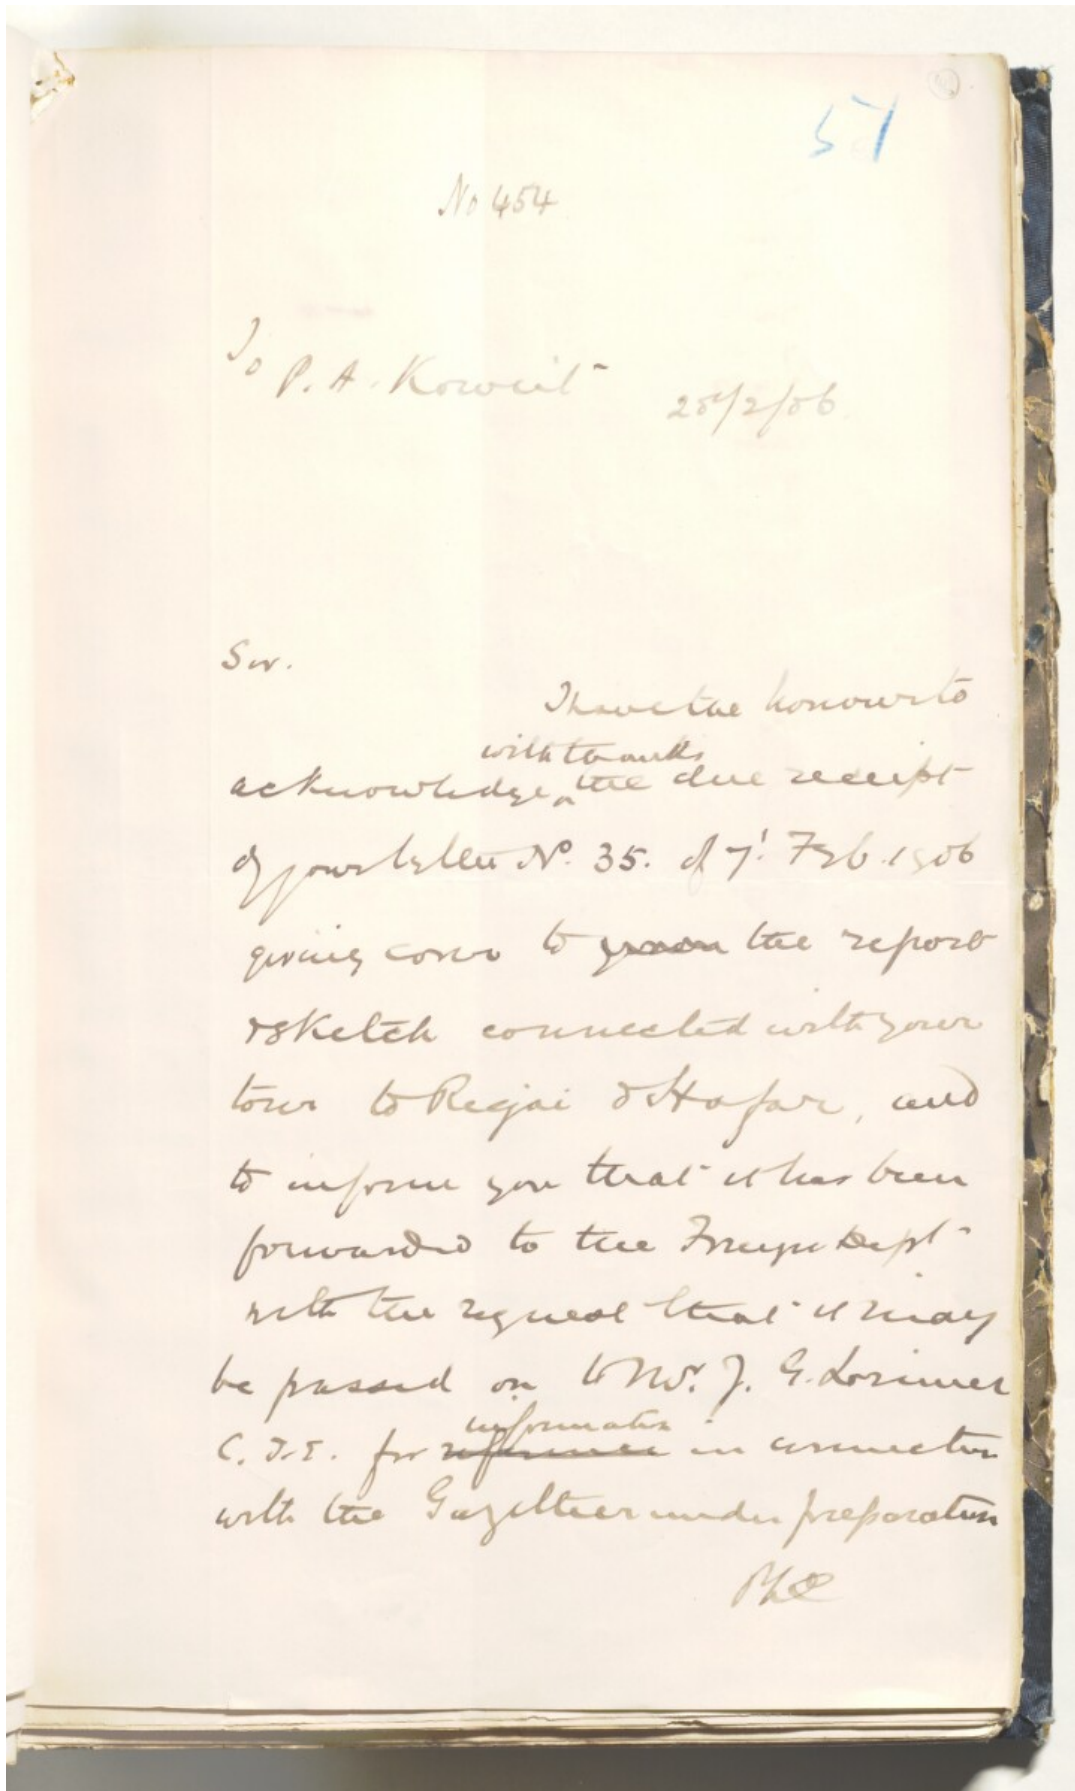 57
No 454
To
P. A. Koweit
25/2/06.
Sir.
I have the honour to
with thanks
acknowledge the due receipt
of your letter No. 35. of 7' Feb. 1906
giving cover to the report
& sketch connected with your
tour to Regai & Hafar, and
to inform you that it has been
forwarded to the Foreign Dept
with the request that it may
be passed on to Mr. J. G. Lorimer
information
C.I.E. for reference in connection
with the Gazetteer under preparation